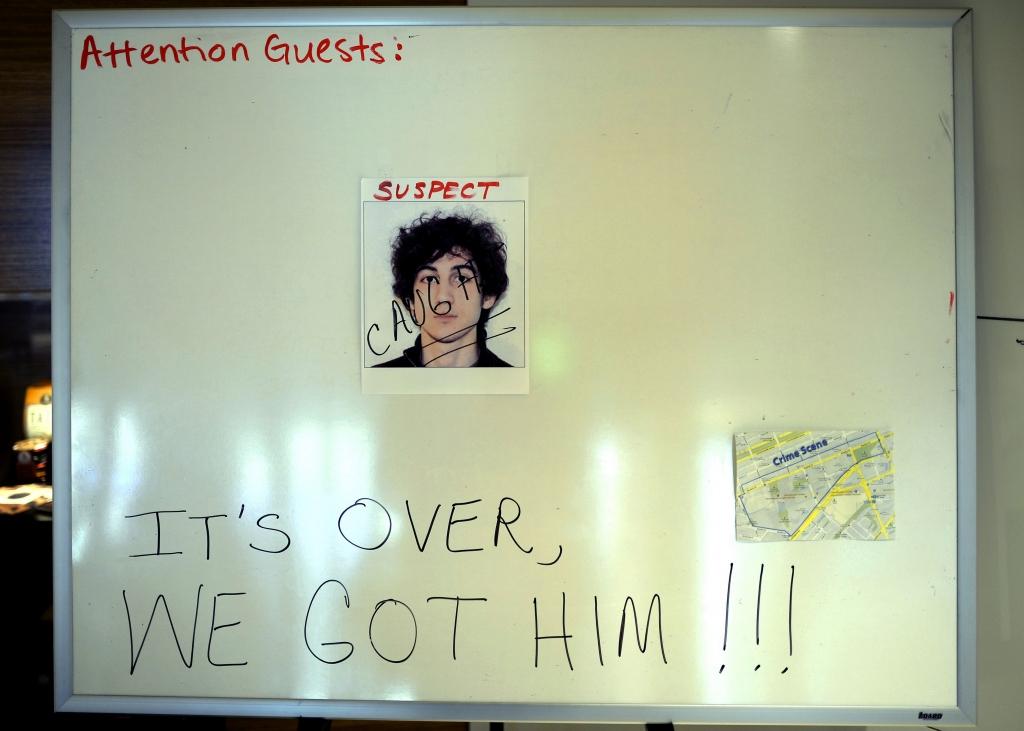 Attention Guests:
SUSPECT
CAUGHT
Crime Scene
IT'S OVER,
WE GOT HIM !!!
BOARD